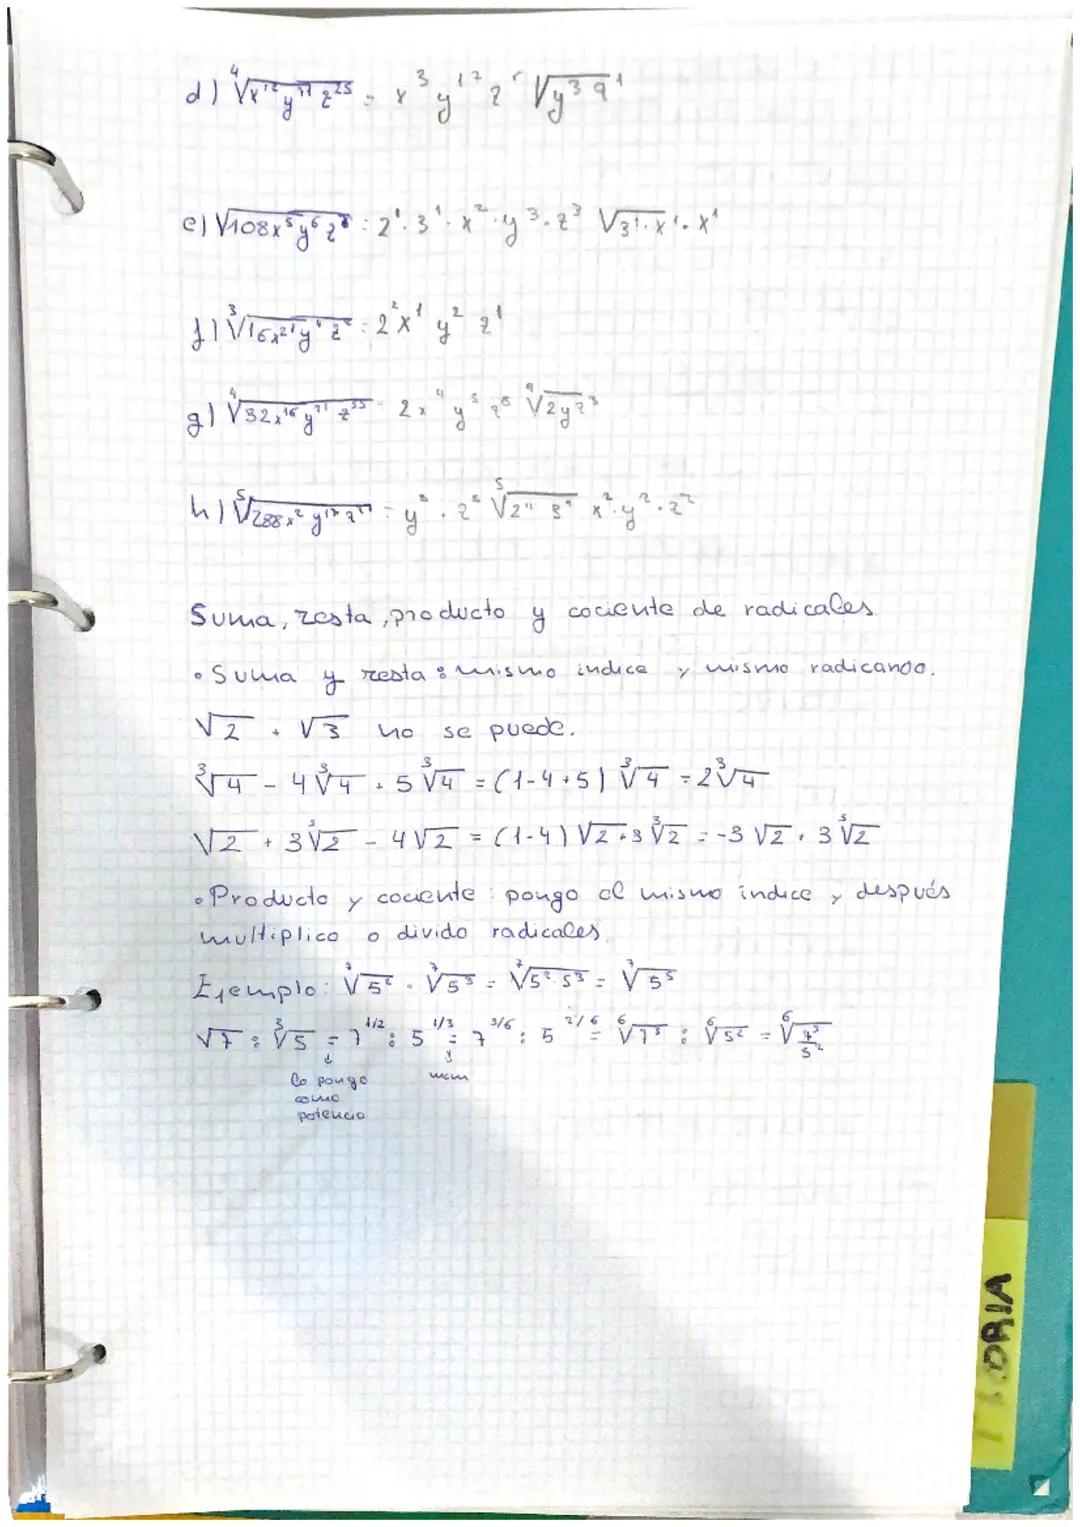 d) ⁴√x¹² y⁷¹ z²⁵ = x³ y¹⁷ z √y³ q¹
e) √108x⁵y⁶z⁸ = 2¹·3¹·x²·y³·z³ √3¹·x¹·x¹
f) ³√16x²¹y z = 2²x¹ y² z¹
g) ⁴√32x¹⁶y²¹z³⁵ = 2x⁴ y⁵ z⁸ ⁴√2yz³
h) ⁵√288x² y¹⁷ z = y³ · z⁵ ⁵√2 3 x²·y²·z²
Suma, resta, producto y cociente de radicales
• Suma y resta: mismo indice y mismo radicando.
√2 + √3 no se puede.
³√4 - 4 ³√4 + 5 ³√4 = (1-4+5) ³√4 = 2 ³√4
√2 + 3 ³√2 - 4√2 = (1-4) √2 + 3 ³√2 = -3 √2 + 3 ³√2
• Producto y cociente: pongo el mismo indice y después
multiplico o divido radicales
Ejemplo: ⁷√5² · ⁷√5³ = ⁷√5² · 5³ = ⁷√5⁵
√7 : ³√5 = 7^1/2 : 5^1/3 = 7^3/6 : 5^2/6 = ⁶√7³ : ⁶√5² = ⁶√7³/5²
↓ ↓
lo pongo mcm
como
potencia
TEORIA